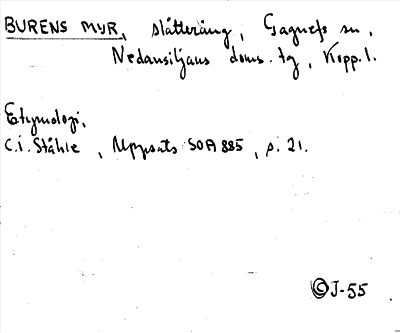 BURENS MYR, slåtteräng, Gagnefs sn,
Nedansiljans doms. tg, Kopp. l.
Etymologi,
C.I. Ståhle, Uppsats SOA 885, s. 21.
© J-55